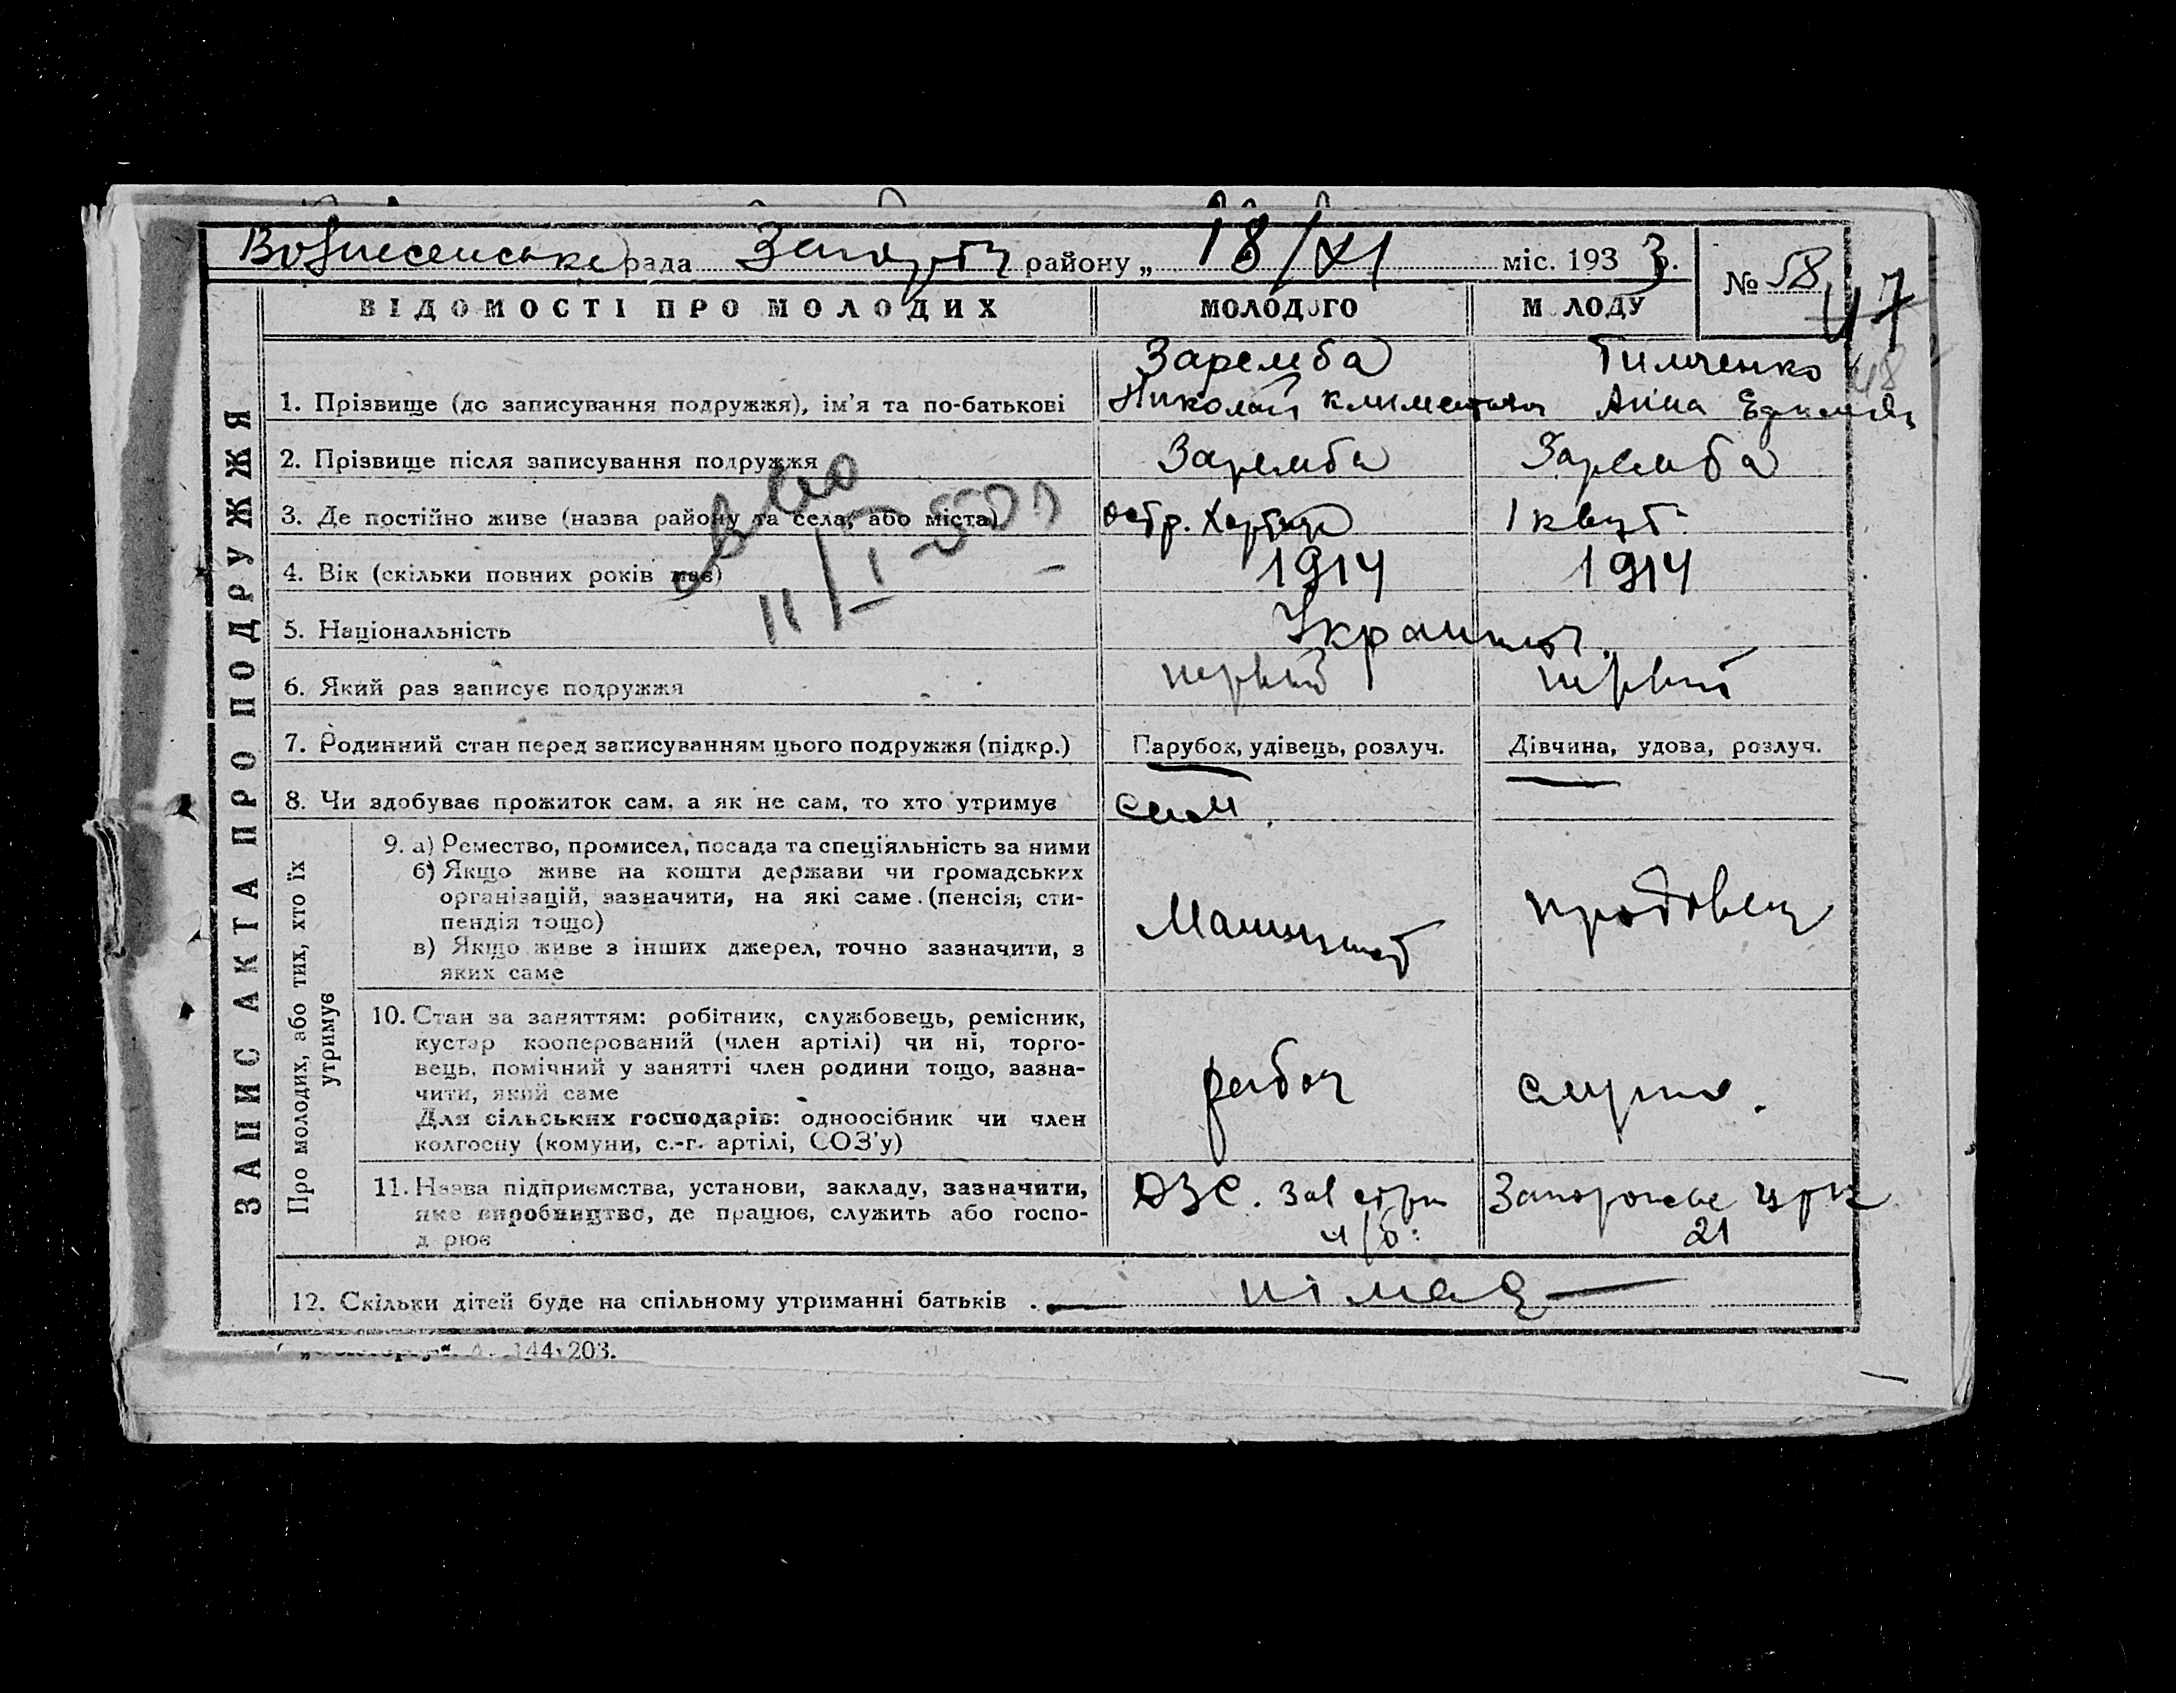 Вознесенська рада Запоріз району „ 18/XI міс. 1933.
№ 58
47
48
ВІДОМОСТІ ПРО МОЛОДИХ МОЛОДОГО МОЛОДУ
ЗАПИС АКТА ПРО ПОДРУЖЖЯ
Заремба Тимченко
1. Прізвище (до записування подружжя), ім'я та по-батькові Николай Климентьев Анна
2. Прізвище після записування подружжя Заремба Заремба
3. Де постійно живе (назва району та села, або міста) остр. Хортиц 1
11/I-
4. Вік (скільки повних років має) 1914 1914
5. Національність
6. Який раз записує подружжя первый первый
7. Родинний стан перед записуванням цього подружжя (підкр.) Парубок, удівець, розлуч. Дівчина, удова, розлуч.
8. Чи здобуває прожиток сам, а як не сам, то хто утримує сам.
Про молодих, або тих, хто їх
утримує
9. а) Ремество, промисел, посада та спеціяльність за ними
б) Якщо живе на кошти держави чи громадських
організацій, зазначити, на які саме (пенсія, сти-
пендія тощо)
в) Якщо живе з інших джерел, точно зазначити, з
яких саме
Машинист продовец
10. Стан за заняттям: робітник, службовець, ремісник,
кустар кооперований (член артілі) чи ні, торго-
вець, помічний у занятті член родини тощо, зазна-
чити, який саме
Для сільських господарів: одноосібник чи член
колгоспу (комуни, с.-г. артілі, СОЗ'у)
рабоч служ.
11. Назва підприємства, установи, закладу, зазначити,
яке виробництво, де працює, служить або госпо-
дарює
ДЗС. Запорожье црк
21
12. Скільки дітей буде на спільному утриманні батьків . — німає —
144-203.